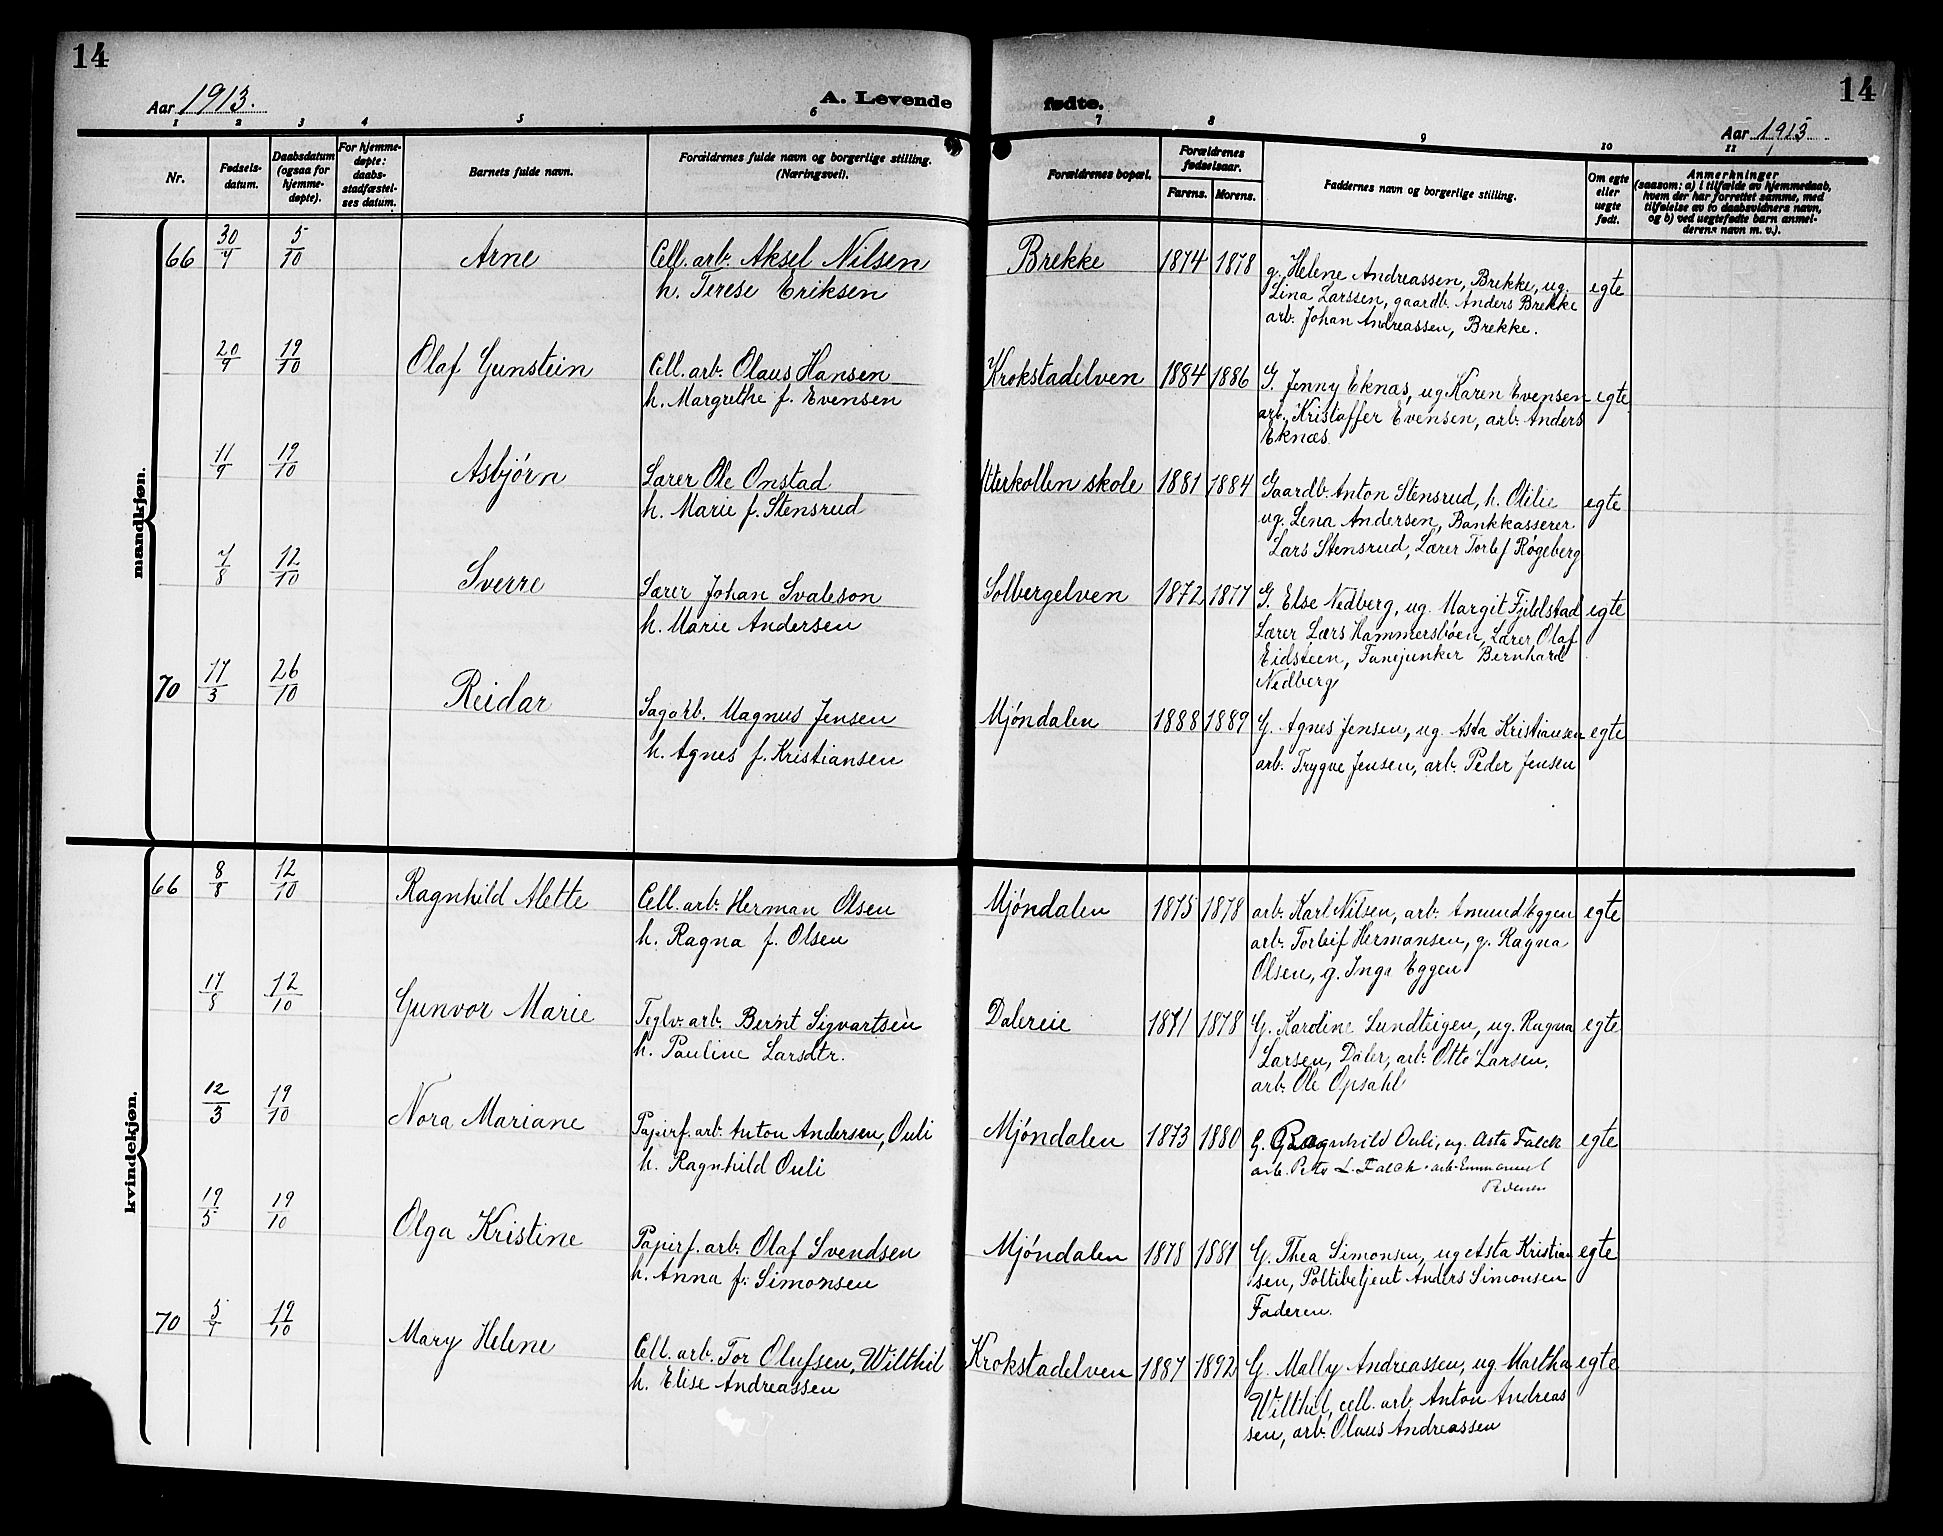 14
14
Aar 1913.
A. Levende
fødte.
Aar 1913
1 2 3 4 5 6 7 8 9 10 11
Nr.
Fødsels-
datum.
Daabsdatum
(ogsaa for
hjemme-
døpte).
For hjemme-
døpte:
daabs-
stadfæstel-
ses datum.
Barnets fulde navn.
Forældrenes fulde navn og borgerlige stilling.
(Næringsvei).
Forældrenes bopæl.
Forældrenes
fødselsaar.
Farens. Morens.
Faddernes navn og borgerlige stilling.
Om egte
eller
uegte
født.
Anmerkninger
(saasom: a) i tilfælde av hjemmedaab,
hvem der har forrettet samme, med
tilføielse av to daabsvidners navn,
og b) ved uegtefødte barn anmel-
derens navn m. v.).
mandkjøn.
66 30/7 5/10 Arne Cell. arb. Aksel Nilsen Brekke 1874 1878 g. Helene Andreassen, Brekke, ug. egte
h. Terese Eriksen Lina Larssen, gaardb. Anders Brekke
arb. Johan Andreassen, Brekke.
20/9 19/10 Olaf Gunstein Cell. arb. Olaus Hansen Krokstadelven 1884 1886 G. Jenny Eknæs, ug Karen Evensen egte
h. Margrethe f. Evensen arb. Kristoffer Evensen, arb. Anders
Eknæs
11/9 19/10 Asbjørn Lærer Ole Onstad Ytterkollen skole 1881 1884 Gaardb. Anton Stensrud, h. Otilie egte
h. Marie f. Stensrud ug. Lena Andersen, Bankkasserer
Lars Stensrud, Lærer Torlef Røgeberg
7/8 12/10 Sverre Lærer Johan Svaleson Solbergelven 1872 1877 G. Else Nedberg, ug. Margit Fjeldstad egte
h. Marie Andersen Lærer Lars Hammersbøen, Lærer Olaf
Eidsteen, Fanejunker Bernhard
Nedberg
70 17/3 26/10 Reidar Sagarb. Magnus Jensen Mjøndalen 1888 1889 G. Agnes Jensen, ug. Asta Kristiansen egte
h. Agnes f. Kristiansen arb. Trygve Jensen, arb. Peder Jensen
kvindekjøn.
66 8/8 12/10 Ragnhild Alette Cell. arb. Herman Olsen Mjøndalen 1875 1878 arb. Karl Nilsen, arb. Amund Eggen egte
h. Ragna f. Olsen arb. Torleif Hermansen, g. Ragna
Olsen, g. Inga Eggen
17/5 12/10 Gunvor Marie Teglv. arb. Bernt Sigvartsen Dalereie 1871 1878 G. Kardine Lundteigen, ug. Ragna egte
h. Pauline Larsdtr. Larsen, Daler, arb. Otto Larsen,
arb. Ole Opsahl
12/3 19/10 Nora Mariane Papirf. arb. Anton Andersen, Ouli Mjøndalen 1873 1880 G. Ragnhild Ouli, ug. Asta Falch egte
h. Ragnhild Ouli arb. L. Falch, arb. Emmanuel
Pedersen
19/5 19/10 Olga Kristine Papirf. arb. Olaf Svendsen Mjøndalen 1878 1881 G. Thea Simonsen, ug Asta Kristian egte
h. Anna f. Simonsen sen, Politibetjent Anders Simonsen
Faderen.
70 5/7 19/10 Mary Helene Cell. arb. Tor Olufsen, Wilthil Krokstadelven 1887 1892 G. Mally Andreassen, ug. Martha egte
h. Elise Andreassen Wilthil, cell. arb. Anton Andreas
sen, arb. Olaus Andreassen